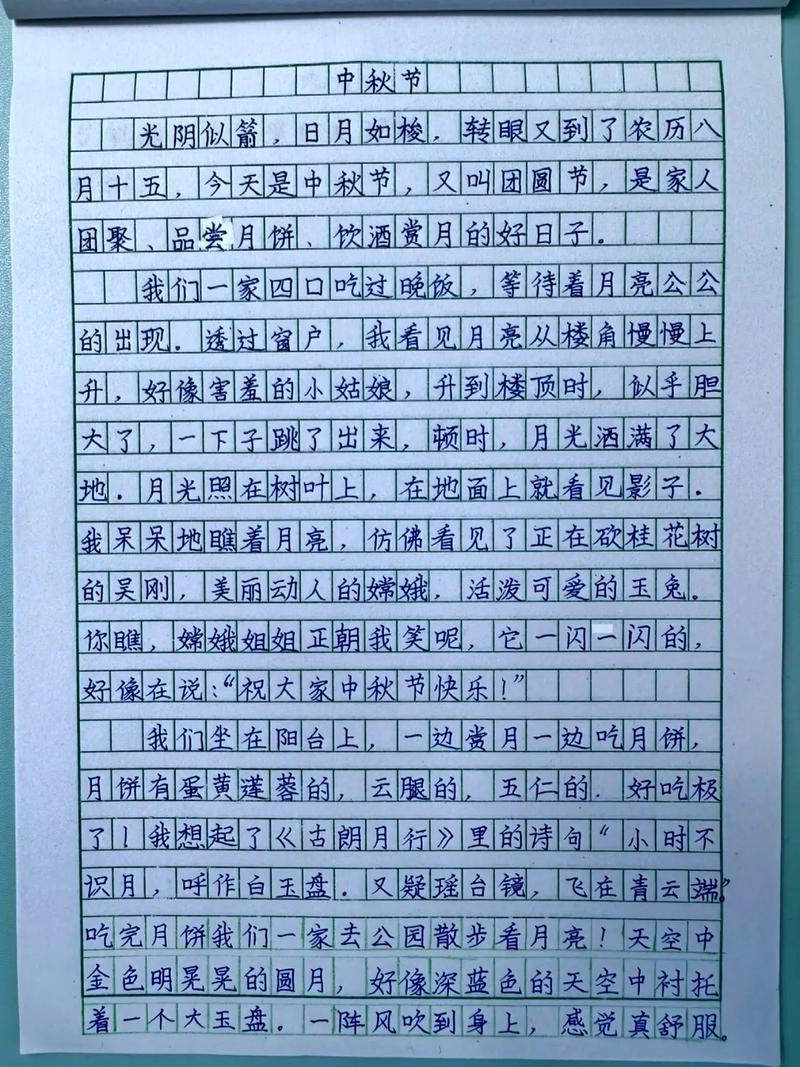 中秋节
光阴似箭，日月如梭，转眼又到了农历八
月十五，今天是中秋节，又叫团圆节，是家人
团聚、品尝月饼、饮酒赏月的好日子。
我们一家四口吃过晚饭，等待着月亮公公
的出现．透过窗户，我看见月亮从楼角慢慢上
升，好像害羞的小姑娘，升到楼顶时，似乎胆
大了，一下子跳了出来，顿时，月光洒满了大
地．月光照在树叶上，在地面上就看见影子．
我呆呆地瞧着月亮，仿佛看见了正在砍桂花树
的吴刚，美丽动人的嫦娥，活泼可爱的玉兔．
你瞧，嫦娥姐姐正朝我笑呢，它一闪一闪的，
好像在说：“祝大家中秋节快乐！”
我们坐在阳台上，一边赏月一边吃月饼，
月饼有蛋黄莲蓉的，云腿的，五仁的．好吃极
了！我想起了《古朗月行》里的诗句“小时不
识月，呼作白玉盘．又疑瑶台镜，飞在青云端。”
吃完月饼我们一家去公园散步看月亮！天空中
金色明晃晃的圆月，好像深蓝色的天空中衬托
着一个大玉盘．一阵风吹到身上，感觉真舒服。